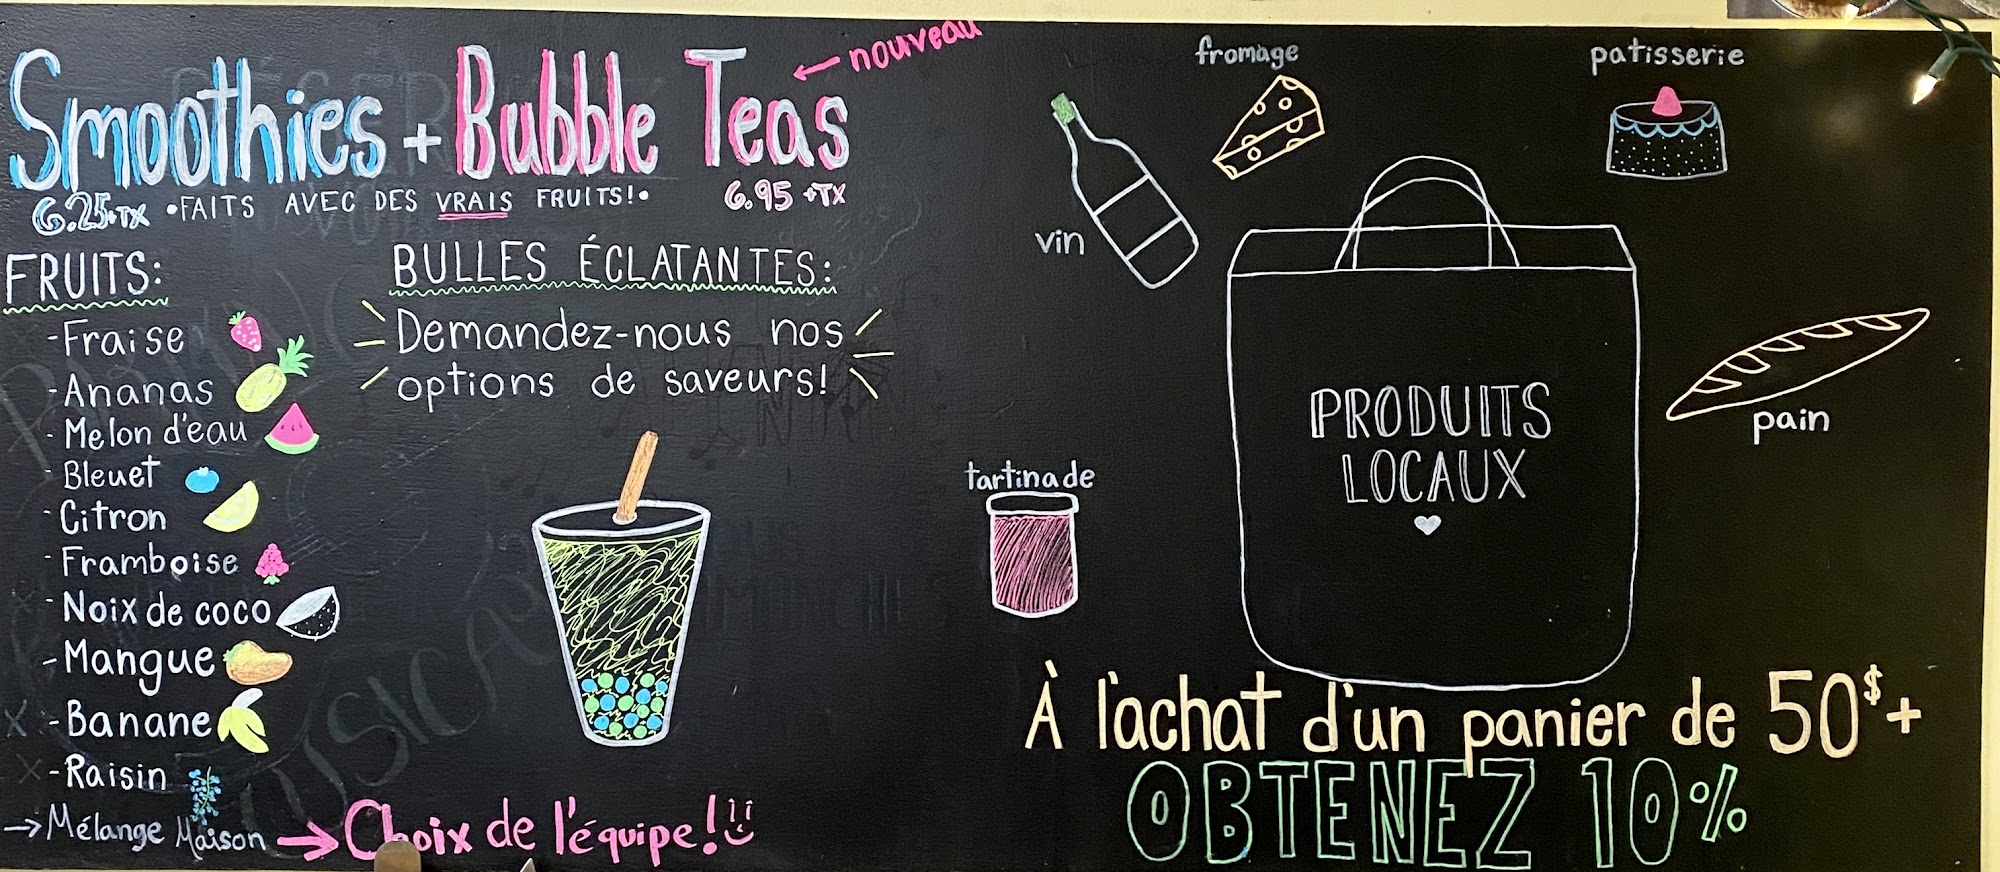 Smoothies + Bubble Teas ← nouveau
6.25+TX •FAITS AVEC DES VRAIS FRUITS!• 6.95 +TX
FRUITS:
-Fraise
-Ananas
-Melon d'eau
-Bleuet
-Citron
-Framboise
-Noix de coco
-Mangue
x -Banane
x -Raisin
→ Mélange Maison → Choix de l'équipe!
BULLES ÉCLATANTES:
Demandez-nous nos
options de saveurs!
fromage
patisserie
vin
pain
tartinade
PRODUITS
LOCAUX
À l'achat d'un panier de 50$+
OBTENEZ 10%